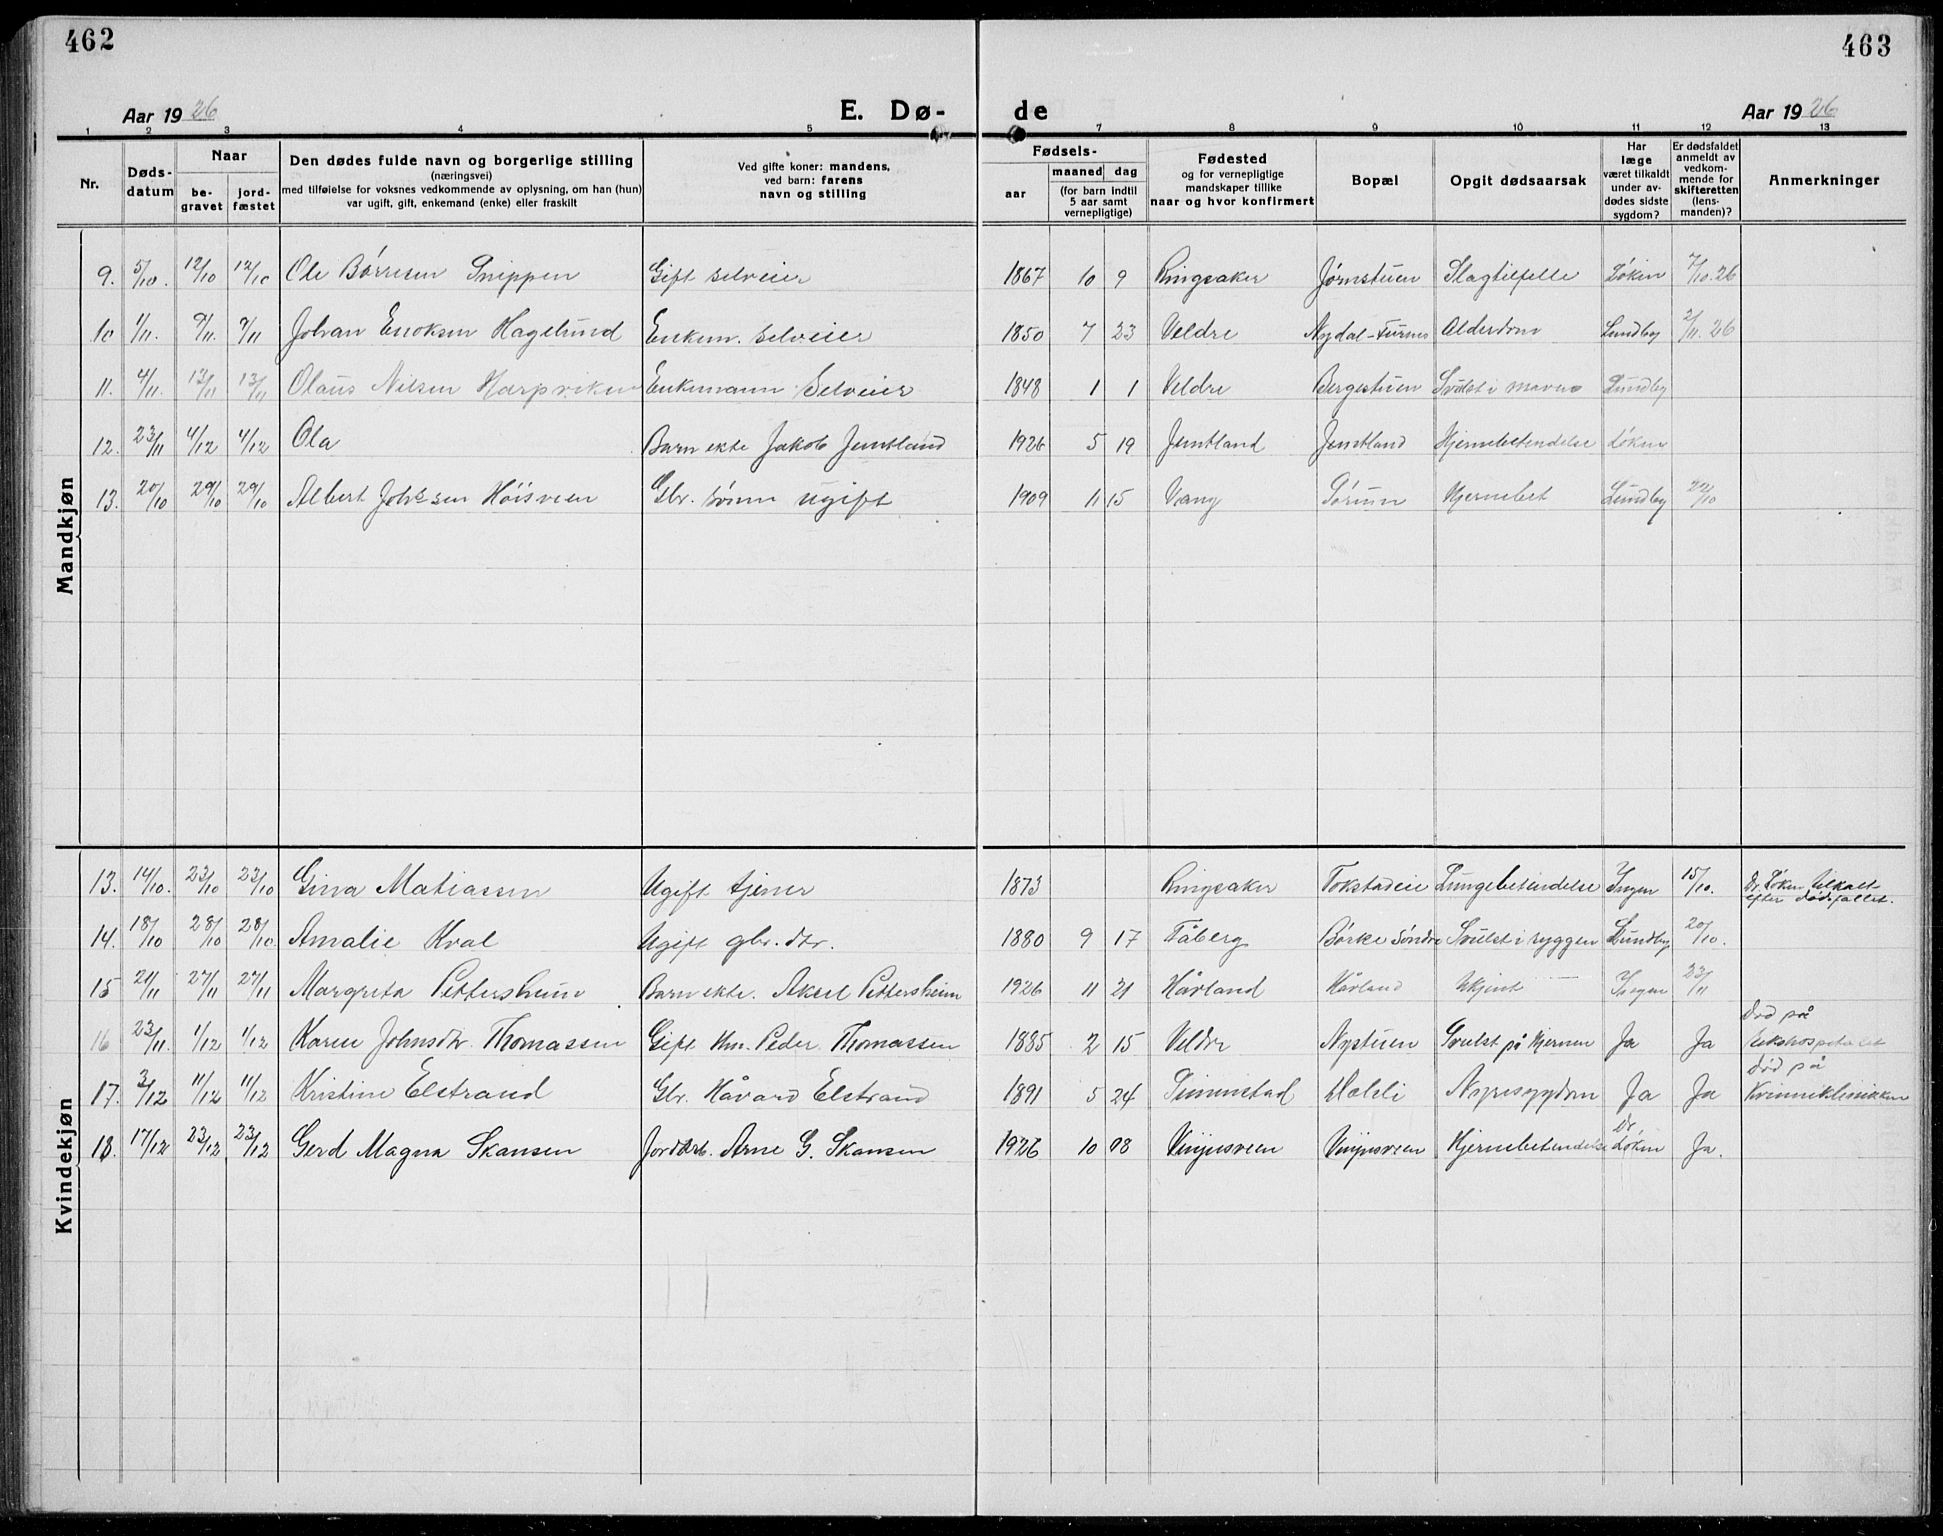 462
463
Aar 1926
E. Dø-
de
Aar 1926
1 2 3 4 5 7 8 9 10 11 12 13
Nr.
Døds-
datum
Naar
be-
gravet
jord-
fæstet
Den dødes fulde navn og borgerlige stilling
(næringsvei)
med tilføielse for voksnes vedkommende av oplysning, om han (hun)
var ugift, gift, enkemand (enke) eller fraskilt
Ved gifte koner: mandens,
ved barn: farens
navn og stilling
Fødsels-
aar
maaned dag
(for barn indtil
5 aar samt
vernepligtige)
Fødested
og for vernepligtige
mandskaper tillike
naar og hvor konfirmert
Bopæl
Opgit dødsaarsak
Har
læge
været tilkaldt
under av-
dødes sidste
sygdom?
Er dødsfaldet
anmeldt av
vedkom-
mende for
skifteretten
(lens-
manden)?
Anmerkninger
Mandkjøn
9. 5/10. 12/10 12/10 Ole Børresen Snippen Gift selveier 1867 10 9 Ringsaker Jørnstuen Slagtilfelle Løken 7/10.26
10 1/11. 9/11. 9/11 Johan Enoksen Hagelund Enkem. selveier 1850 7 23 Veldre Nydal-Furnes Alderdom Lundby 2/11.26
11. 4/11. 13/11 13/11 Olaus Nilsen Harpviken Enkemann Selveier 1848 1 1 Veldre Bergestuen Svulst i maven Lundby
12. 23/11 4/12 4/12 Ola Barn ekte Jakob Jemtland 1926 5 19 Jemtland Jemtland Hjernebetendelse Løken
13. 20/10 29/10 29/10 Albert Johssen Høisveen Gbr. sønn ugift 1909 11 15 Vang Sørum Hjernebet Lundby 22/10
Kvindekjøn
13. 14/10. 23/10 23/10 Gina Matiassen Ugift tjener 1873 Ringsaker Tokstadeie Lungebetendelse Ingen 15/10. Dr. Løken tilkalt
efter dødsfallet.
14. 18/10 28/10 28/10. Amalie Kval Ugift gbr. dtr. 1880 9 17 Fåberg Børke Søndre Svulst i ryggen Lundby 20/10.
15 21/11 27/11 27/11 Margreta Pettersheim Barn ekte. Aksel Pettersheim 1926 11 21 Hårland Hårland Ukjent Ingen 23/11
16 23/11. 1/12 1/12 Karen Johnsdtr. Thomassen Gift Hm. Peder Thomassen 1885 2 15 Veldre Nystuen Svulst på hjernen Ja Ja Død på
Rikshospitalet
17. 3/12 11/12 11/12 Kristine Elstrand Gbr. Håvard Elstrand 1891 5 24 Ja Ja død på
Kvinneklinikken
18. 17/12 23/12 23/12 Gerd Magna Skansen Jordarb. Arne G. Skansen 1926 10 08 Hjernebetendelse Dr.
Løken Ja.